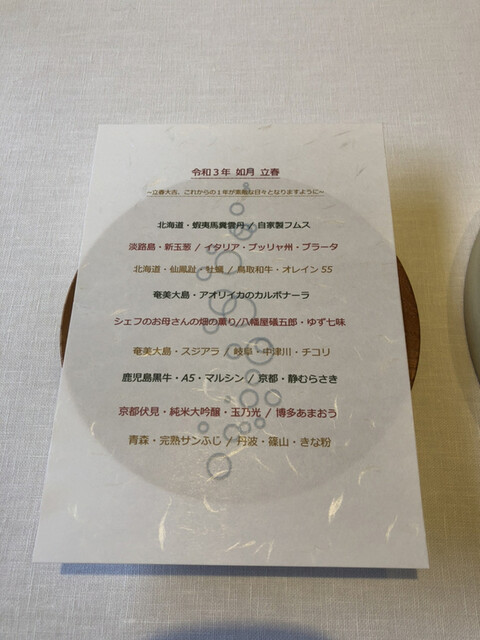 令和3年 如月 立春
~立春大吉、これからの1年が素敵な日々となりますように~
北海道・蝦夷馬糞雲丹 / 自家製フムス
淡路島・新玉葱 / イタリア・プッリャ州・ブラータ
北海道・仙鳳趾・牡蠣 / 鳥取和牛・オレイン 55
奄美大島・アオリイカのカルボナーラ
シェフのお母さんの畑の薫り/八幡屋礒五郎・ゆず七味
奄美大島・スジアラ / 岐阜・中津川・チコリ
鹿児島黒牛・A5・マルシン / 京都・静むらさき
京都伏見・純米大吟醸・玉乃光 / 博多あまおう
青森・完熟サンふじ / 丹波・篠山・きな粉